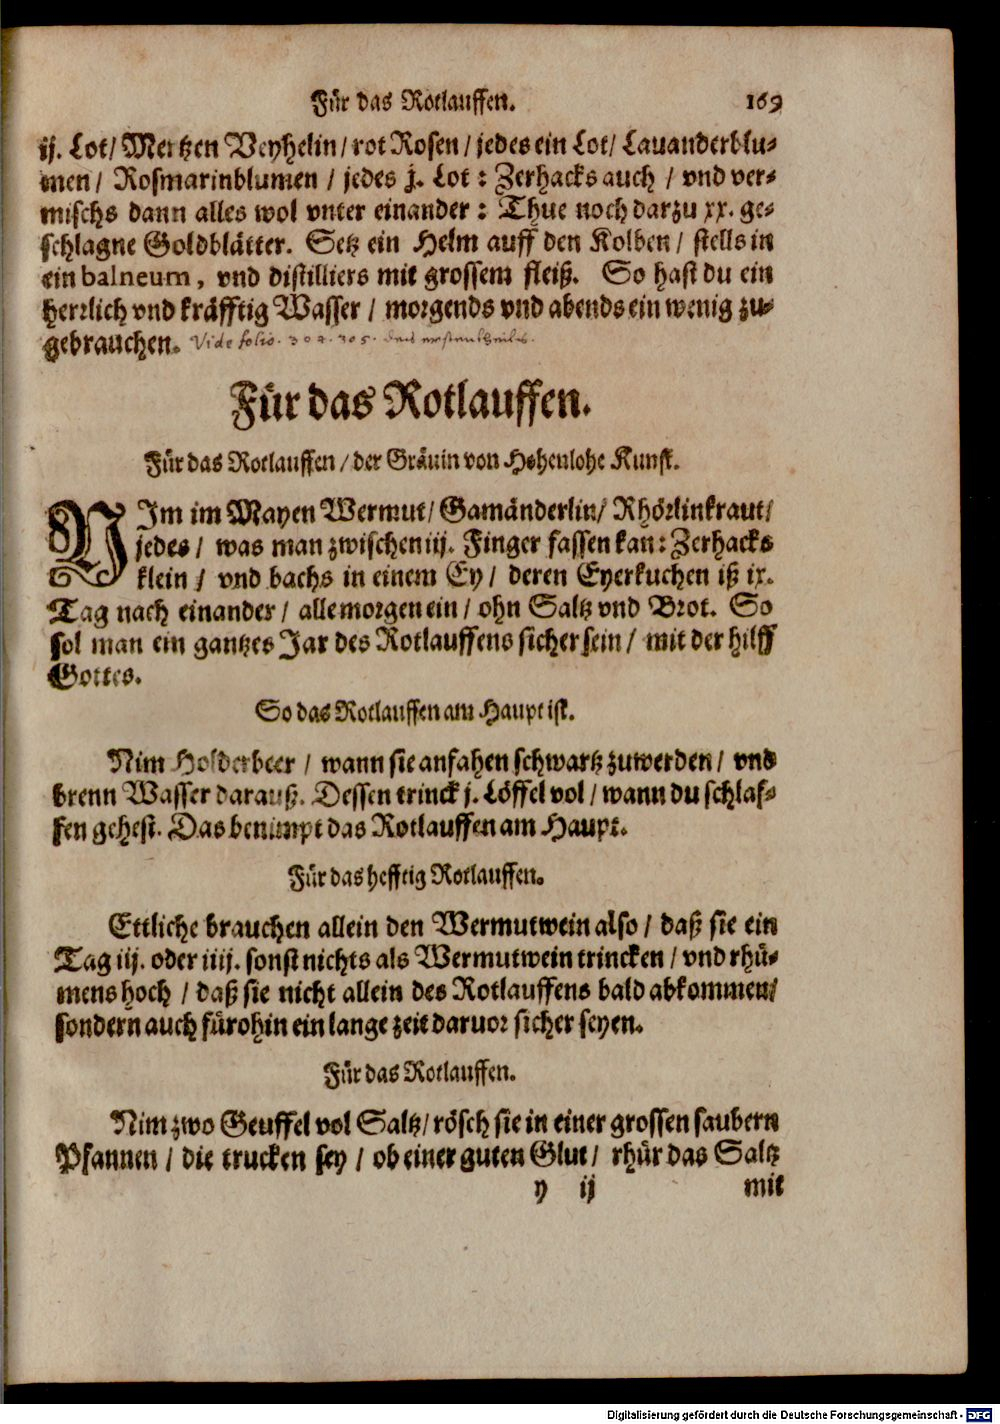 Für das Rotlauffen. 169
ij. Lot/ Mertzen Veyhelin/ rot Rosen/ jedes ein Lot/ Lauanderblu-
men/ Rosmarinblumen / jedes j. Lot : Zerhacks auch / vnd ver-
mischs dann alles wol vnter einander : Thue noch darzu xx. ge-
schlagne Goldblätter. Setz ein Helm auff den Kolben/ stells in
ein balneum, vnd distilliers mit grossem fleiß. So hast du ein
herrlich vnd kräfftig Wasser / morgends vnd abends ein wenig zu-
gebrauchen. Vide folio. 304. 305. des ersten theils.
Für das Rotlauffen.
Für das Rotlauffen / der Gräuin von Hohenlohe Kunst.
NIm im Mayen Wermut/ Gamänderlin/ Rhörlinkraut/
jedes / was man zwischen iij. Finger fassen kan: Zerhacks
klein / vnd bachs in einem Ey / deren Eyerkuchen iß ix.
Tag nach einander / alle morgen ein / ohn Saltz vnd Brot. So
sol man ein gantzes Jar des Rotlauffens sicher sein / mit der hilff
Gottes.
So das Rotlauffen am Haupt ist.
Nim Holderbeer / wann sie anfahen schwartz zuwerden / vnd
brenn Wasser darauß. Dessen trinck j. Löffel vol / wann du schlaf-
fen gehest. Das benimpt das Rotlauffen am Haupt.
Für das hefftig Rotlauffen.
Ettliche brauchen allein den Wermutwein also / daß sie ein
Tag iij. oder iiij. sonst nichts als Wermutwein trincken / vnd rhü-
mens hoch / daß sie nicht allein des Rotlauffens bald abkommen/
sondern auch fürohin ein lange zeit daruor sicher seyen.
Für das Rotlauffen.
Nim zwo Geuffel vol Saltz/ rösch sie in einer grossen saubern
Pfannen / die trucken sey / ob einer guten Glut / rhür das Saltz
y ij mit
Digitalisierung gefördert durch die Deutsche Forschungsgemeinschaft - DFG